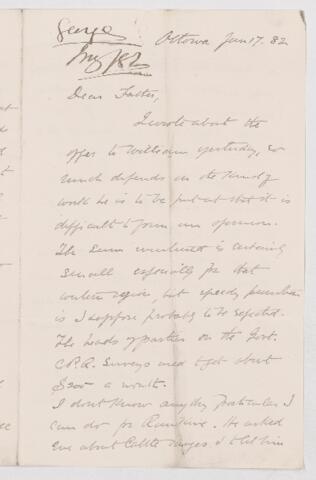 George
Ottawa Jan 17. 82
Dear Father,
I wrote about the
offer to William yesterday, so
much depends on the kind of
work he is to be put at that it is
difficult to form an opinion.
The sum mentioned is certainly
small especially for that
western region, but speedy promotion
is I suppose probably to be expected.
The heads of parties on the Govt.
C.P.R. Surveys used to get about
$200 a month.
I don't know anything particular I
can do for Rankine. He asked
me about Cattle ranges & I told him